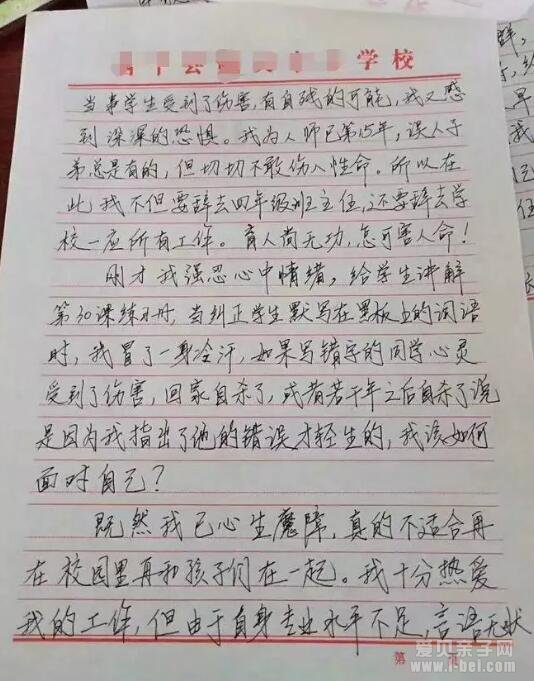 学校
当事学生受到了伤害,有自残的可能,我又感
到深深的恐惧。我为人师已第15年,误人子
弟总是有的,但切切不敢伤人性命。所以在
此我不但要辞去四年级班主任,还要辞去学
校一应所有工作。育人尚无功,怎可害人命!
刚才我强忍心中情绪,给学生讲解
第30课练习册,当纠正学生默写在黑板上的词语
时,我冒了一身冷汗,如果写错字的同学心灵
受到了伤害,回家自杀了,或者若干年之后自杀了说
是因为我指出了他的错误才轻生的,我该如何
面对自己?
既然我已心生魔障,真的不适合再
在校园里再和孩子们在一起。我十分热爱
我的工作,但由于自身专业水平不足,言语无状
第 页
爱贝亲子网
www.i-bei.com